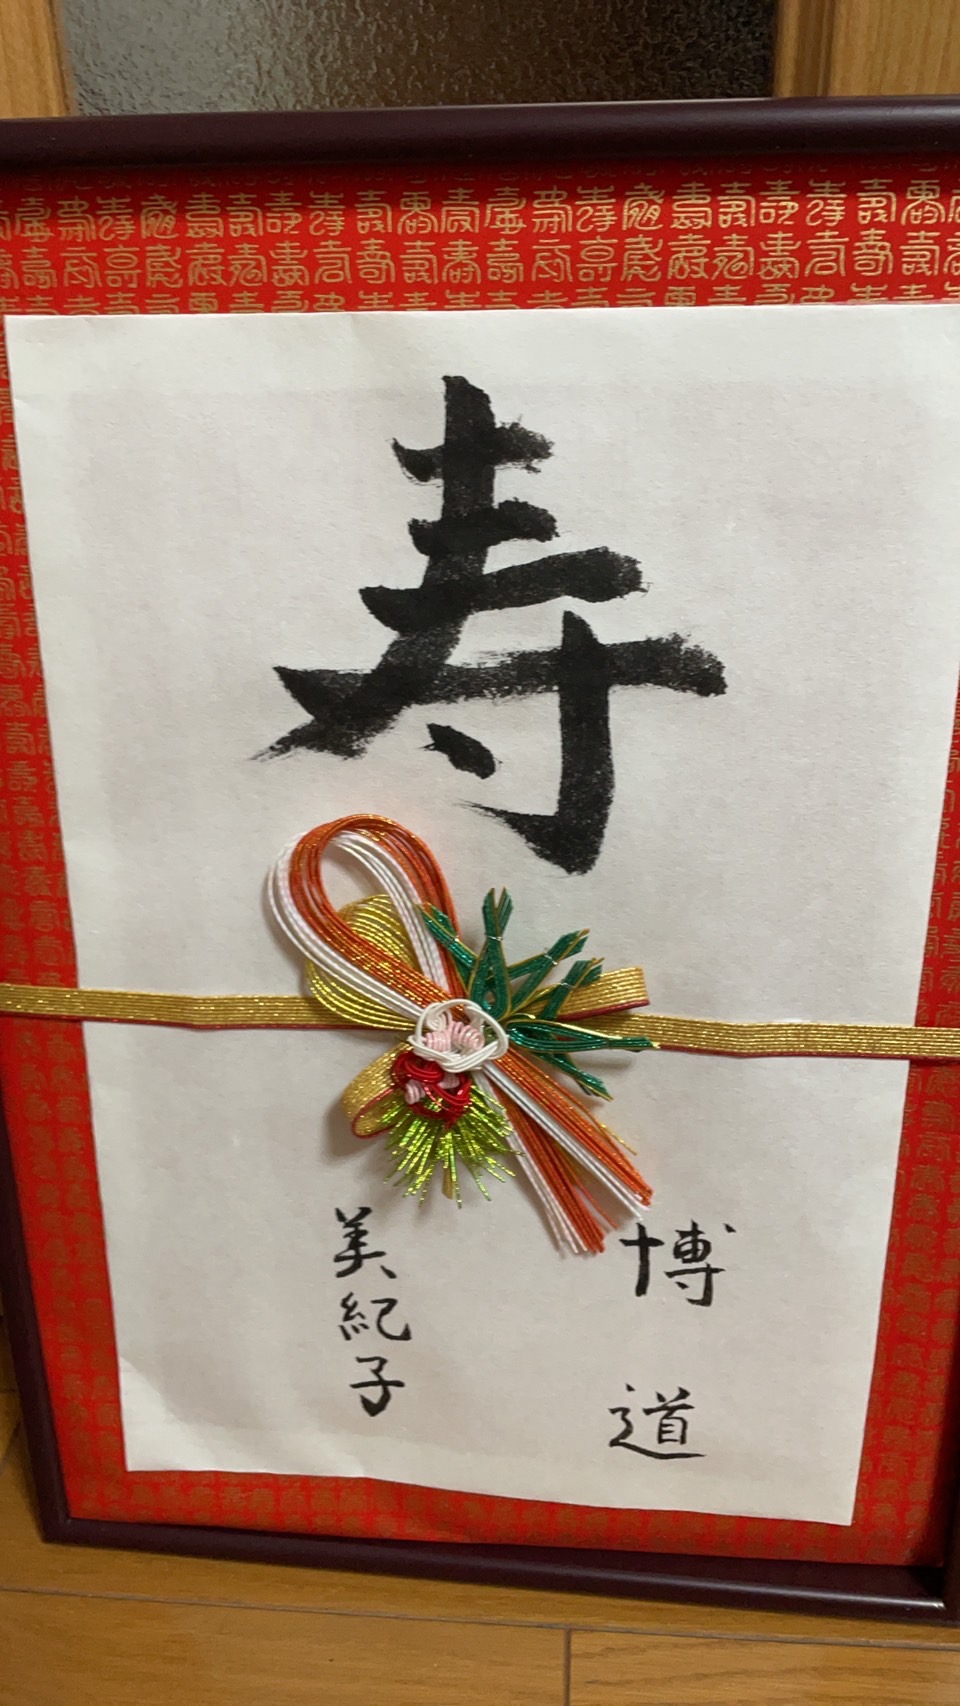 寿
博道
美紀子